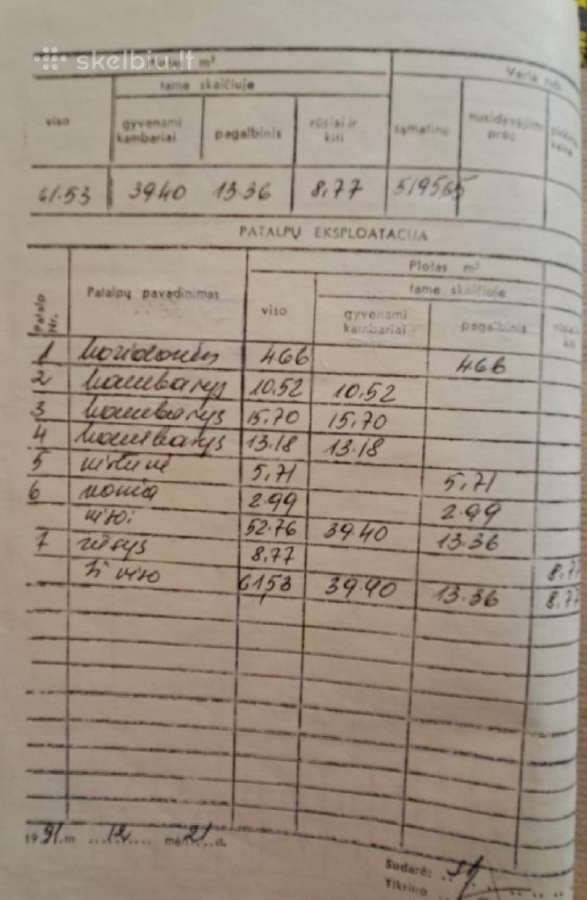 skelbiu.lt
m²
Vertė rub.
tame skaičiuje
viso
gyvenami kambariai
pagalbinis
rūsiai ir kiti
sąmatinė
nusidėvėjimo proc.
61.53 3940 13.36 8,77 519565
PATALPŲ EKSPLOATACIJA
Plotas m²
Patalp. Nr.
Patalpų pavadinimas
viso
tame skaičiuje
gyvenami kambariai
pagalbinis
kiti
1 koridorius 466 466
2 kambarys 10.52 10.52
3 kambarys 15.70 15.70
4 kambarys 13.18 13.18
5 virtuvė 5,71 5,71
6 vonia 2.99 2.99
viso: 52.76 39.40 13.36
7 rūsys 8.77 8.7
Iš viso 61,53 39.90 13.36 8,7
1991 m 12 mėn. 21 d.
Sudarė:
Tikrino